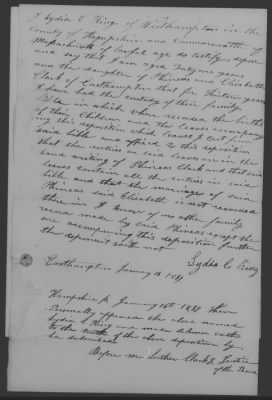 I Lydia C Ring of Westhampton in the
county of Hampshire and Commonwealth of
Massachusetts of lawful age do testify depose
and say that I am aged fifty years
am the daughter of Phineas and Elizabeth
Clark of Easthampton that for thirteen years
I have had the custody of their family
Bible in which were recorded the births
of their Children and the leaves accompany
ing this deposition which leaves I cut from
said bible and affixed to this deposition
that the entries on said leaves are in the
hand writing of Phineas Clark and that said
leaves contain all the entries in said
bible and that the marriage of said
Phineas and said Elizabeth is not recorded
there in I know of no other family
record made by said Phineas except the
one accompanying this deposition further
the deponent saith not
Lydia C Ring
Easthampton January 16 1837
Hampshire ss January 16th 1837 then
Personally appeared the above named
Lydia C Ring and made solemn oath
to the truth of the above deposition by
her subscribed
Before me Luther Clark Justice
of the Peace